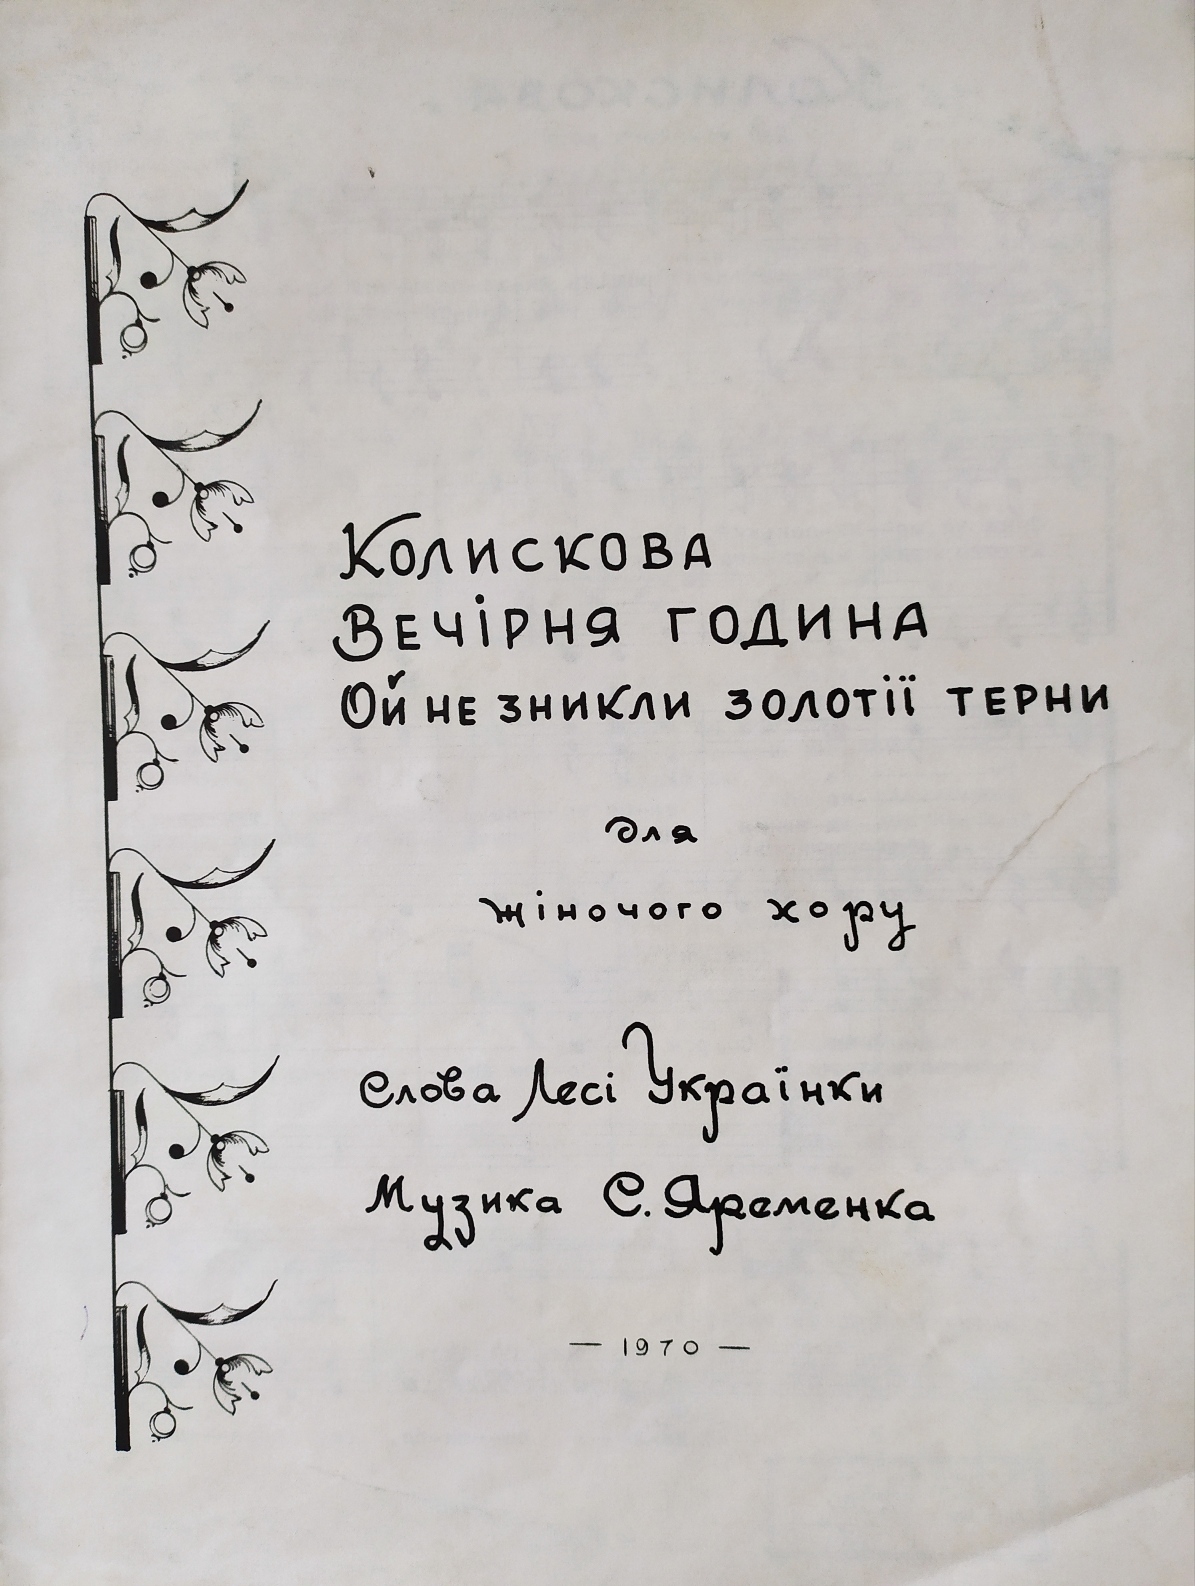 Колискова
Вечірня година
Ой не зникли золотії терни
для
жіночого хору
Слова Лесі Українки
Музика С. Яременка
— 1970 —